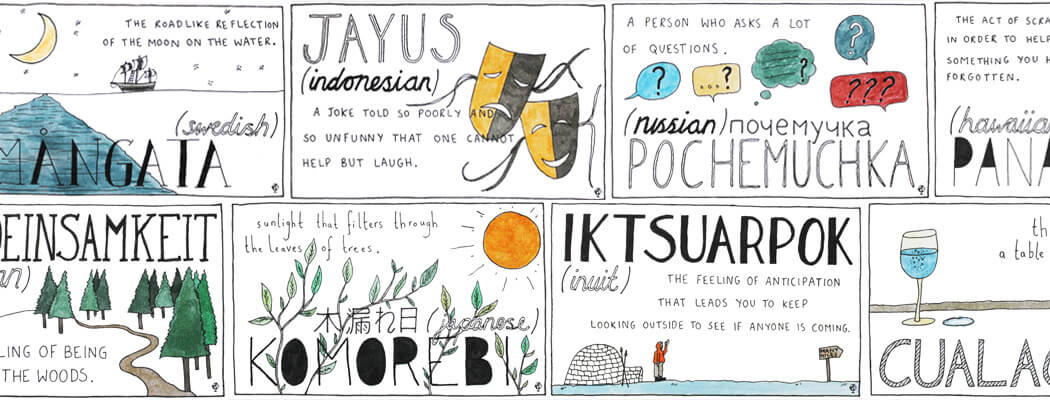 THE ROADLIKE REFLECTION
OF THE MOON ON THE WATER.
(swedish)
MÅNGATA
JAYUS
(indonesian)
A JOKE TOLD SO POORLY AND
SO UNFUNNY THAT ONE CANNOT
HELP BUT LAUGH.
A PERSON WHO ASKS A LOT
OF QUESTIONS.
?
?
...?
?
???
(russian) почемучка
POCHEMUCHKA
THE ACT OF SCRA
IN ORDER TO HELP
SOMETHING YOU H
FORGOTTEN.
(hawaiia
PANA
DEINSAMKEIT
an)
LING OF BEING
THE WOODS.
sunlight that filters through
the leaves of trees.
木漏れ日 (japanese)
KOMOREBI
IKTSUARPOK
(inuit)
THE FEELING OF ANTICIPATION
THAT LEADS YOU TO KEEP
LOOKING OUTSIDE TO SEE IF ANYONE IS COMING.
th
a table
CUALAC